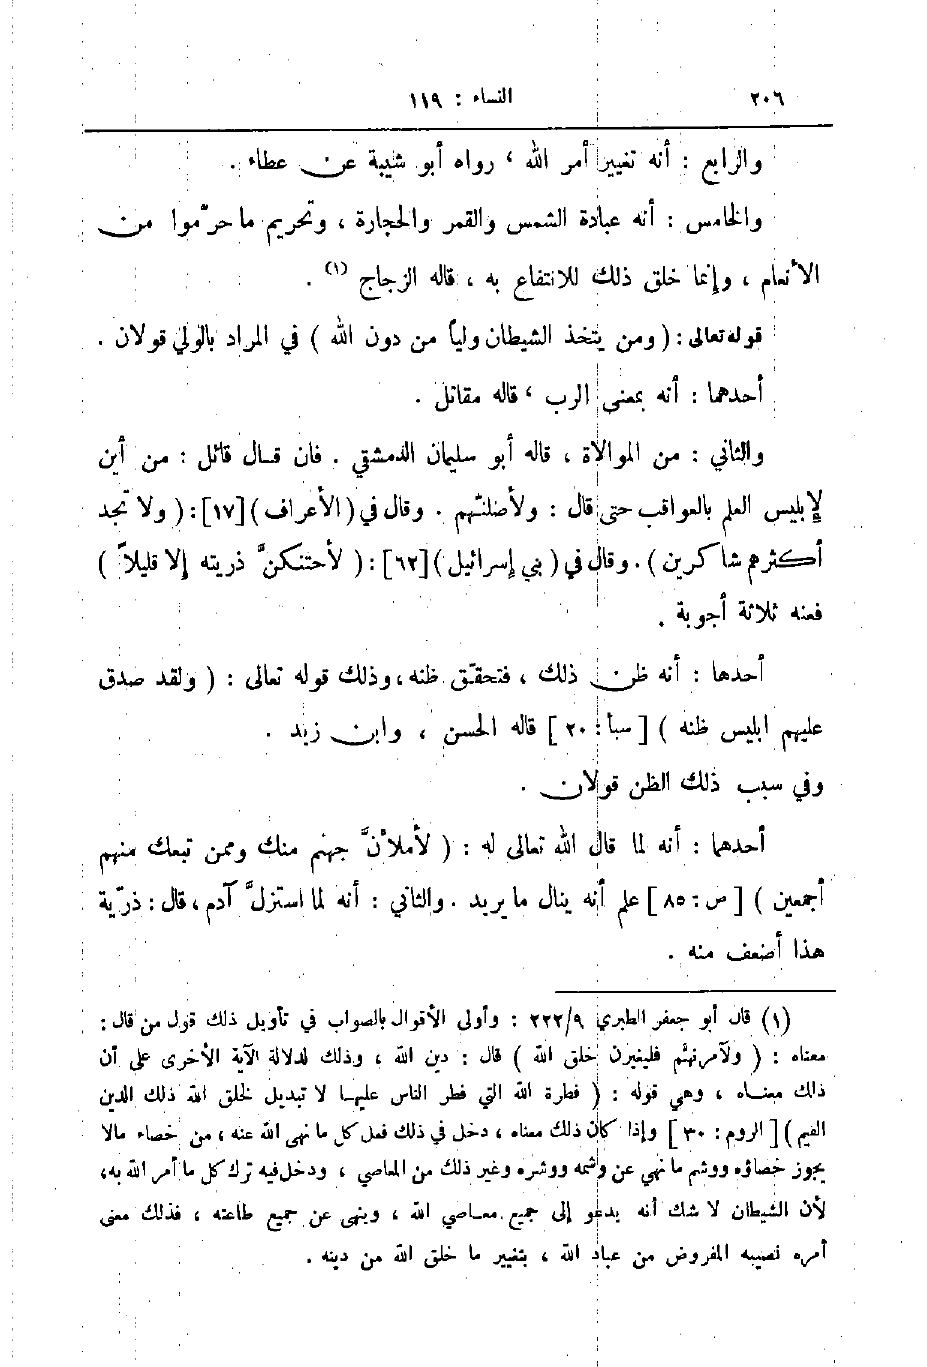 ٢٠٦ النساء : ١١٩
والرابع : أنه تغيير أمر الله ، رواه أبو شيبة عن عطاء .
والخامس : أنه عبادة الشمس والقمر والحجارة ، وتحريم ما حرّموا من
الأنعام ، وإنما خلق ذلك للانتفاع به ، قاله الزجاج (١) .
قوله تعالى : ( ومن يتخذ الشيطان ولياً من دون الله ) في المراد بالولي قولان .
أحدهما : أنه بمعنى الرب ، قاله مقاتل .
والثاني : من الموالاة ، قاله أبو سليمان الدمشقي . فان قال قائل : من أين
لإبليس العلم بالعواقب حتى قال : ولأضلنّهم . وقال في ( الأعراف ) [١٧] : ( ولا تجد
أكثرهم شاكرين ) . وقال في ( بني إسرائيل ) [٦٢] : ( لأحتنكنَّ ذريته إلا قليلاً )
فعنه ثلاثة أجوبة .
أحدها : أنه ظن ذلك ، فتحقّق ظنه ، وذلك قوله تعالى : ( ولقد صدق
عليهم ابليس ظنه ) [ سبأ : ٢٠ ] قاله الحسن ، وابن زيد .
وفي سبب ذلك الظن قولان .
أحدهما : أنه لما قال الله تعالى له : ( لأملأنَّ جهنم منك وممن تبعك منهم
أجمعين ) [ ص : ٨٥ ] علم أنه ينال ما يريد . والثاني : أنه لما استزلَّ آدم ، قال : ذرّية
هذا أضعف منه .
(١) قال أبو جعفر الطبري ٢٢٢/٩ : وأولى الأقوال بالصواب في تأويل ذلك قول من قال :
معناه : ( ولآمرنهم فليغيرن خلق الله ) قال : دين الله ، وذلك لدلالة الآية الأخرى على أن
ذلك معناه ، وهي قوله : ( فطرة الله التي فطر الناس عليها لا تبديل لخلق الله ذلك الدين
القيم ) [ الروم : ٣٠ ] وإذا كان ذلك معناه ، دخل في ذلك فعل كل ما نهى الله عنه ، من خصاء مالا
يجوز خصاؤه ووشم ما نهي عن وشمه ووشره وغير ذلك من المعاصي ، ودخل فيه ترك كل ما أمر الله به ،
لأن الشيطان لا شك أنه يدعو إلى جميع معاصي الله ، وينهى عن جميع طاعته ، فذلك معنى
أمره نصيبه المفروض من عباد الله ، بتغيير ما خلق الله من دينه .